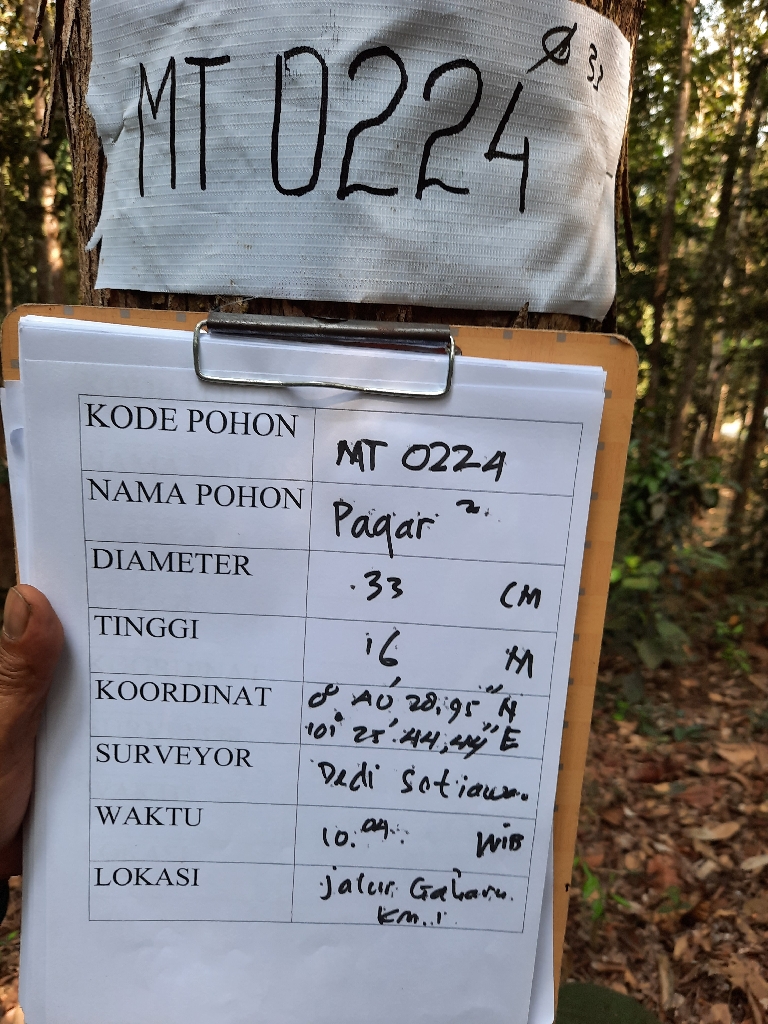 MT 0224 Ø 33
KODE POHON MT 0224
NAMA POHON Pagar ²
DIAMETER 33 CM
TINGGI 16 M
KOORDINAT 0° 40' 28,95" N
101° 25' 44,44" E
SURVEYOR Dedi Setiawan.
WAKTU 10.04. WIB
LOKASI jalur Gaharu
KM.1